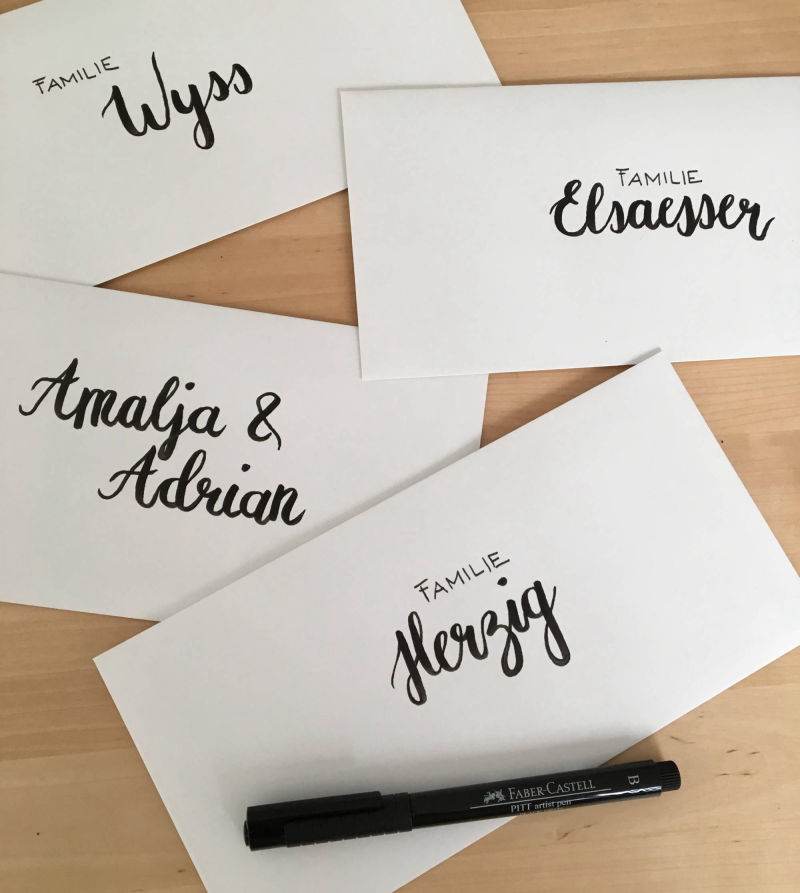 FAMILIE
Wyss
FAMILIE
Elsaesser
Amalja &
Adrian
FAMILIE
Herzig
FABER-CASTELL
PITT artist pen
B